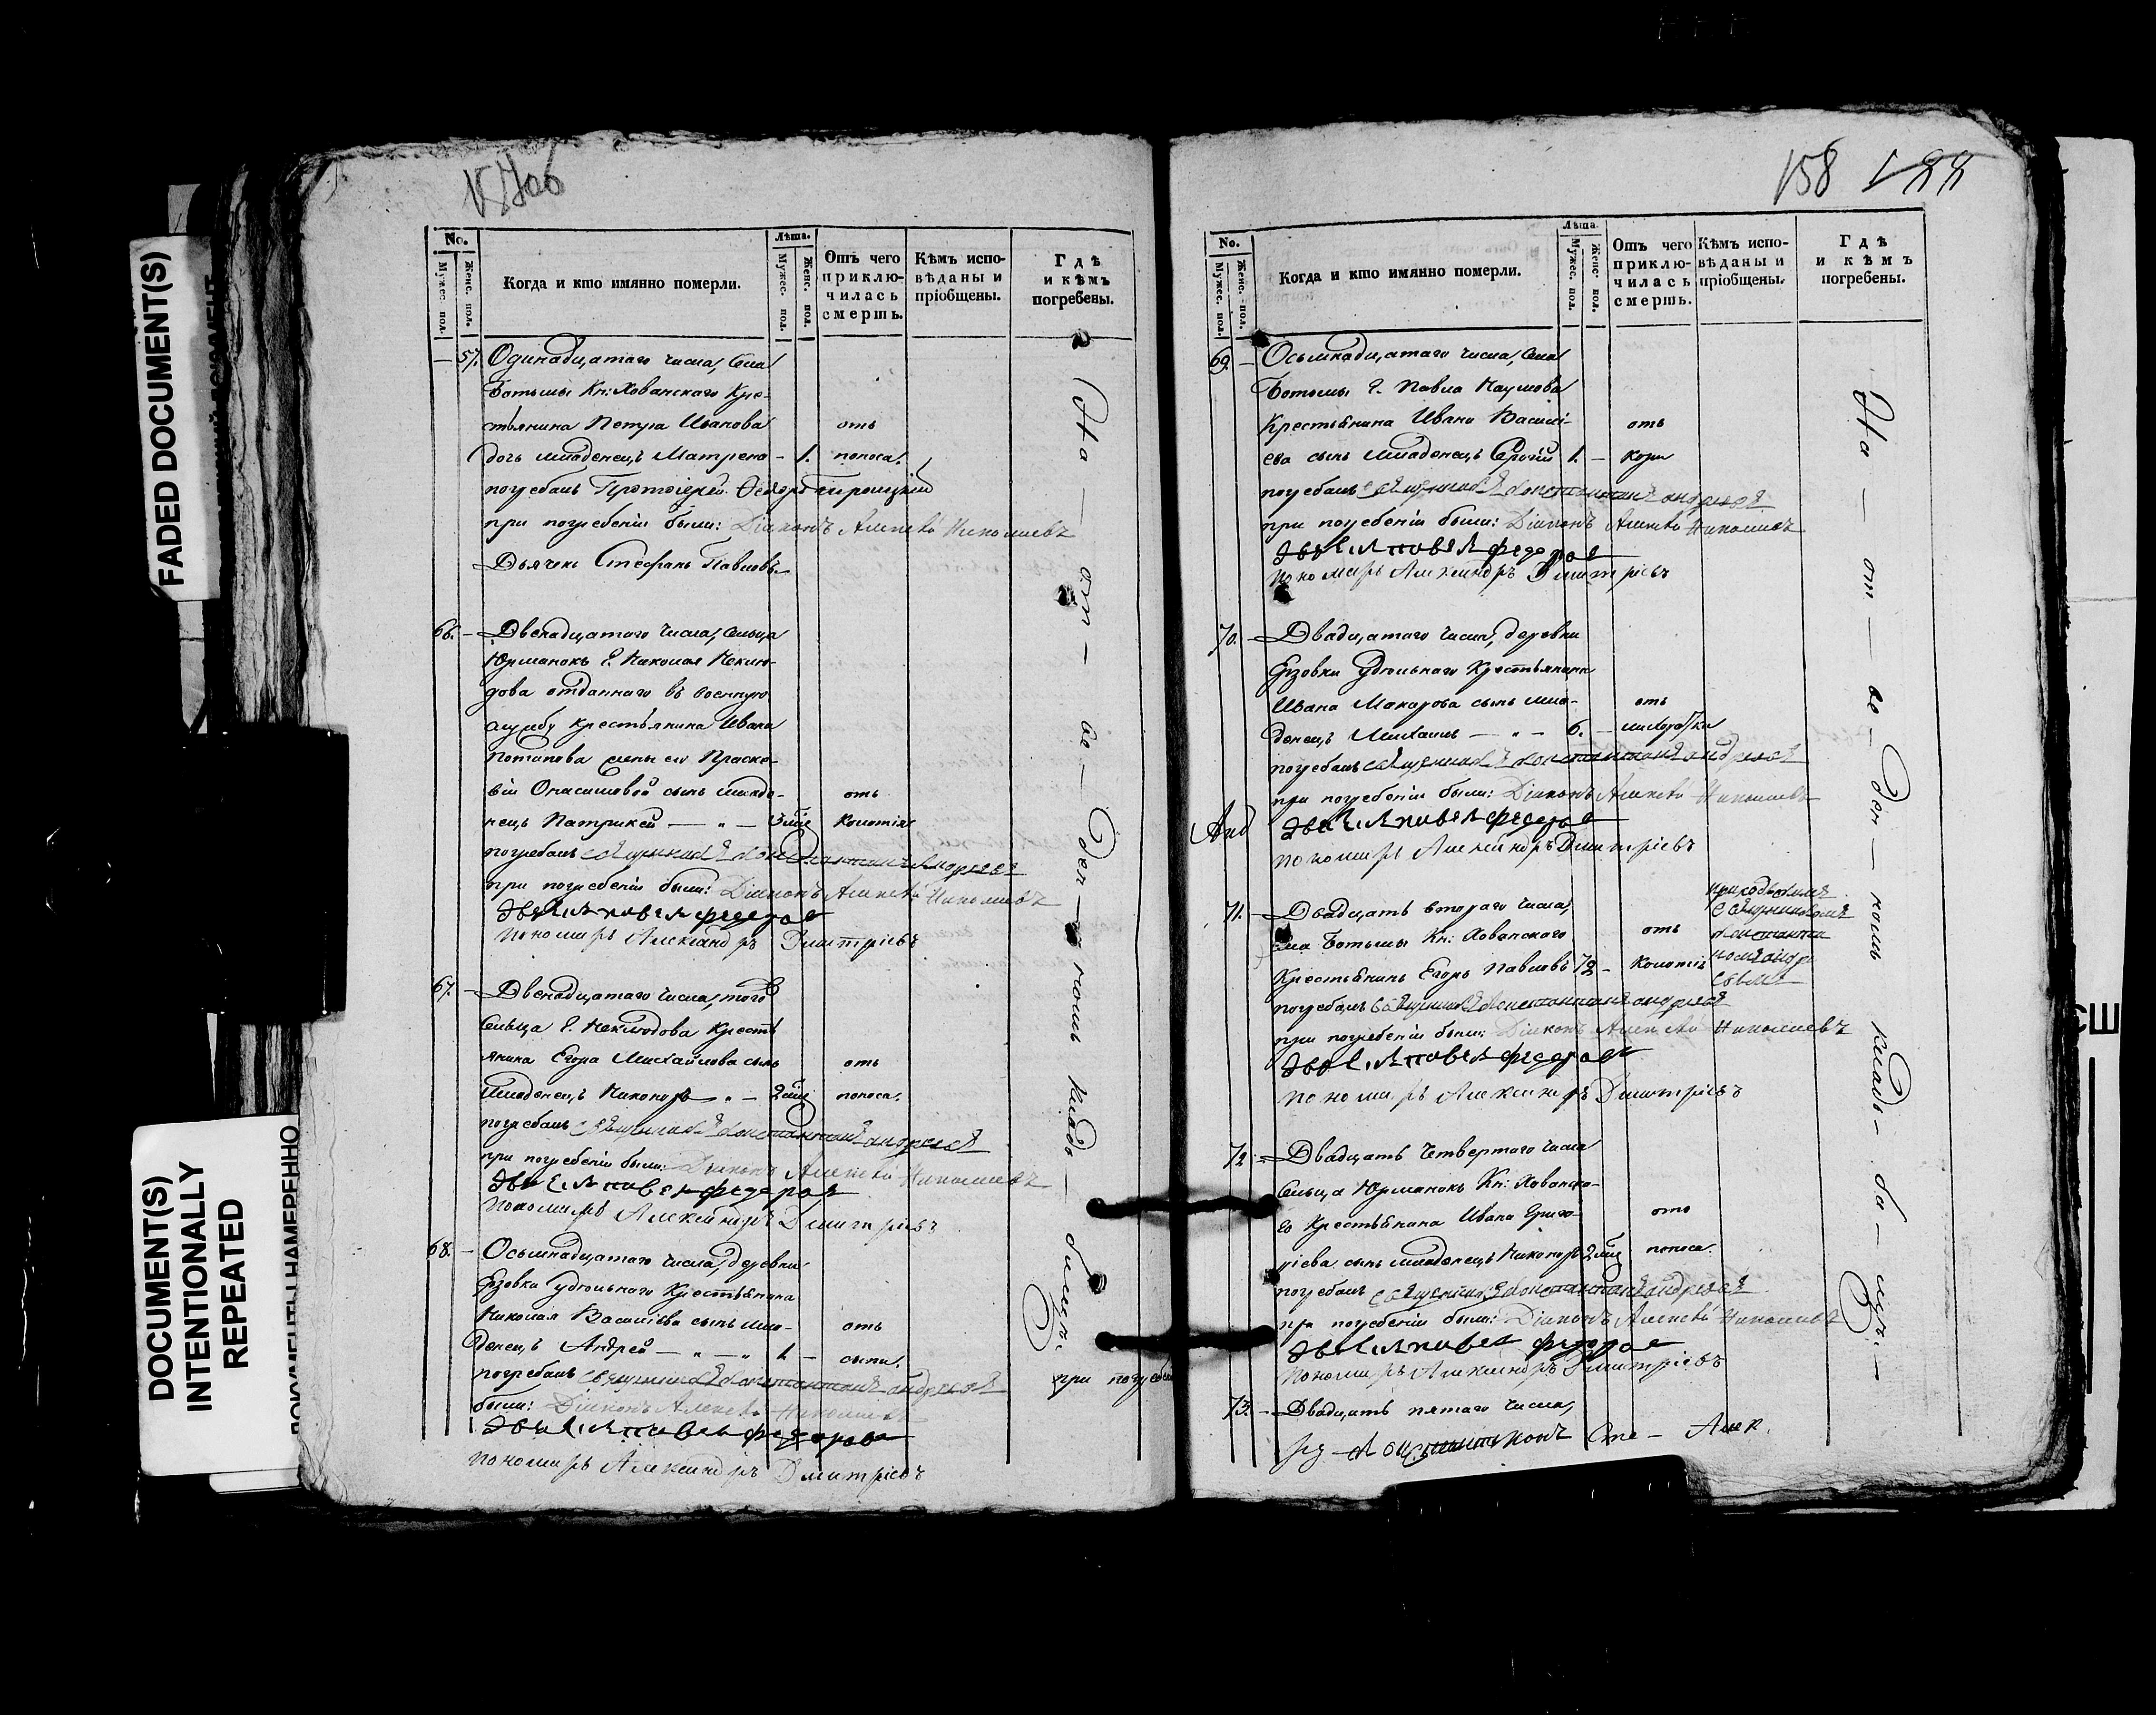 FADED DOCUMENT(S)
DOCUMENT(S)
INTENTIONALLY
REPEATED
No.
Мужес. пол.
Женс. пол.
Когда и кто имянно померли.
Лѣта.
Мужес. пол.
Женс. пол.
Отъ чего
приклю-
чилась
смерть.
Кѣмъ испо-
вѣданы и
пріобщены.
Гдѣ
и кѣмъ
погребены.
— 57. Одинадцатаго числа, села
Ботьмы Кн: Хованскаго Кре-
стьянина Петра Иванова отъ
дочь младенецъ Матрена - 1. поноса.
погребалъ Протоіерей
при погребеніи были: Діаконъ Алексѣй Николаевъ
Дьячекъ Стефанъ Павловъ
66. — Двенадцатаго числа, сельца
Юрманокъ Г. Николая Неклю-
дова отданнаго въ военную
службу крестьянина Ивана
Потапова жены его Праско-
віи сынъ младе- отъ
нецъ Патрикей — „ — колотія
погребалъ священникъ Константинъ Андреевъ
при погребеніи были: Діаконъ Алексѣй Николаевъ
Федоровъ
пономарь Александръ Дмитріевъ
67. — Двенадцатаго числа, того
сельца Г. Неклюдова Кресть
янина Егора Михайлова сынъ отъ
младенецъ Никоноръ „ — поноса.
погребалъ священникъ Константинъ Андреевъ
при погребеніи были: Діаконъ Алексѣй Николаевъ
Федоровъ
Пономарь Александръ Дмитріевъ
68. — Осьмнадцатаго числа, деревни
Ерзовки удѣльнаго Крестьянина
Николая Васильева сынъ мла- отъ
денецъ Андрей — „ — „ 1. — сыпи.
погребалъ священникъ Константинъ Андреевъ при погребен
были: Діаконъ Алексѣй Николаевъ
Федоровъ
пономарь Александръ Дмитріевъ
На — от — ве — ден — номъ кладо — бищѣ.
158
No.
Мужес. пол.
Женс. пол.
Когда и кто имянно померли.
Лѣта.
Мужес. пол.
Женс. пол.
Отъ чего
приклю-
чилась
смерть.
Кѣмъ испо-
вѣданы и
пріобщены.
Гдѣ
и кѣмъ
погребены.
69. — Осьмнадцатаго числа, села
Ботьмы Г. Павла Наумова
Крестьянина Ивана Василь- отъ
ева сынъ младенецъ Сергій 1. — кори
погребалъ священникъ Константинъ Андреевъ
при погребеніи были: Діаконъ Алексѣй Николаевъ
Федоровъ
пономарь Александръ Дмитріевъ
70. — Двадцатаго числа, деревни
Ерзовки удѣльнаго Крестьянина
Ивана Макарова сынъ мла- отъ
денецъ Михаилъ — „ — 6. — лихорадки
погребалъ священникъ Константинъ Андреевъ
при погребеніи были: Діаконъ Алексѣй Николаевъ
Федоровъ
пономарь Александръ Дмитріевъ
71. — Двадцать втораго числа,
села Ботьмы Кн: Хованскаго отъ
Крестьянинъ Егоръ Павловъ 72 — колотія
приходскимъ
священникомъ
Константи
номъ Андре
евымъ
погребалъ священникъ Константинъ Андреевъ
при погребеніи были: Діаконъ Алексѣй Николаевъ
Федоровъ
Пономарь Александръ Дмитріевъ
72. — Двадцать четвертаго числа
Сельца Юрманокъ Кн: Хованска-
го Крестьянина Ивана Григо- отъ
рьева сынъ младенецъ Никоноръ поноса.
погребалъ священникъ Константинъ Андреевъ
при погребеніи были: Діаконъ Алексѣй Николаевъ
Федоровъ
Пономарь Александръ Дмитріевъ
73. — Двадцать пятаго числа,
На — от — ве — ден — номъ кладо — би — щѣ. —